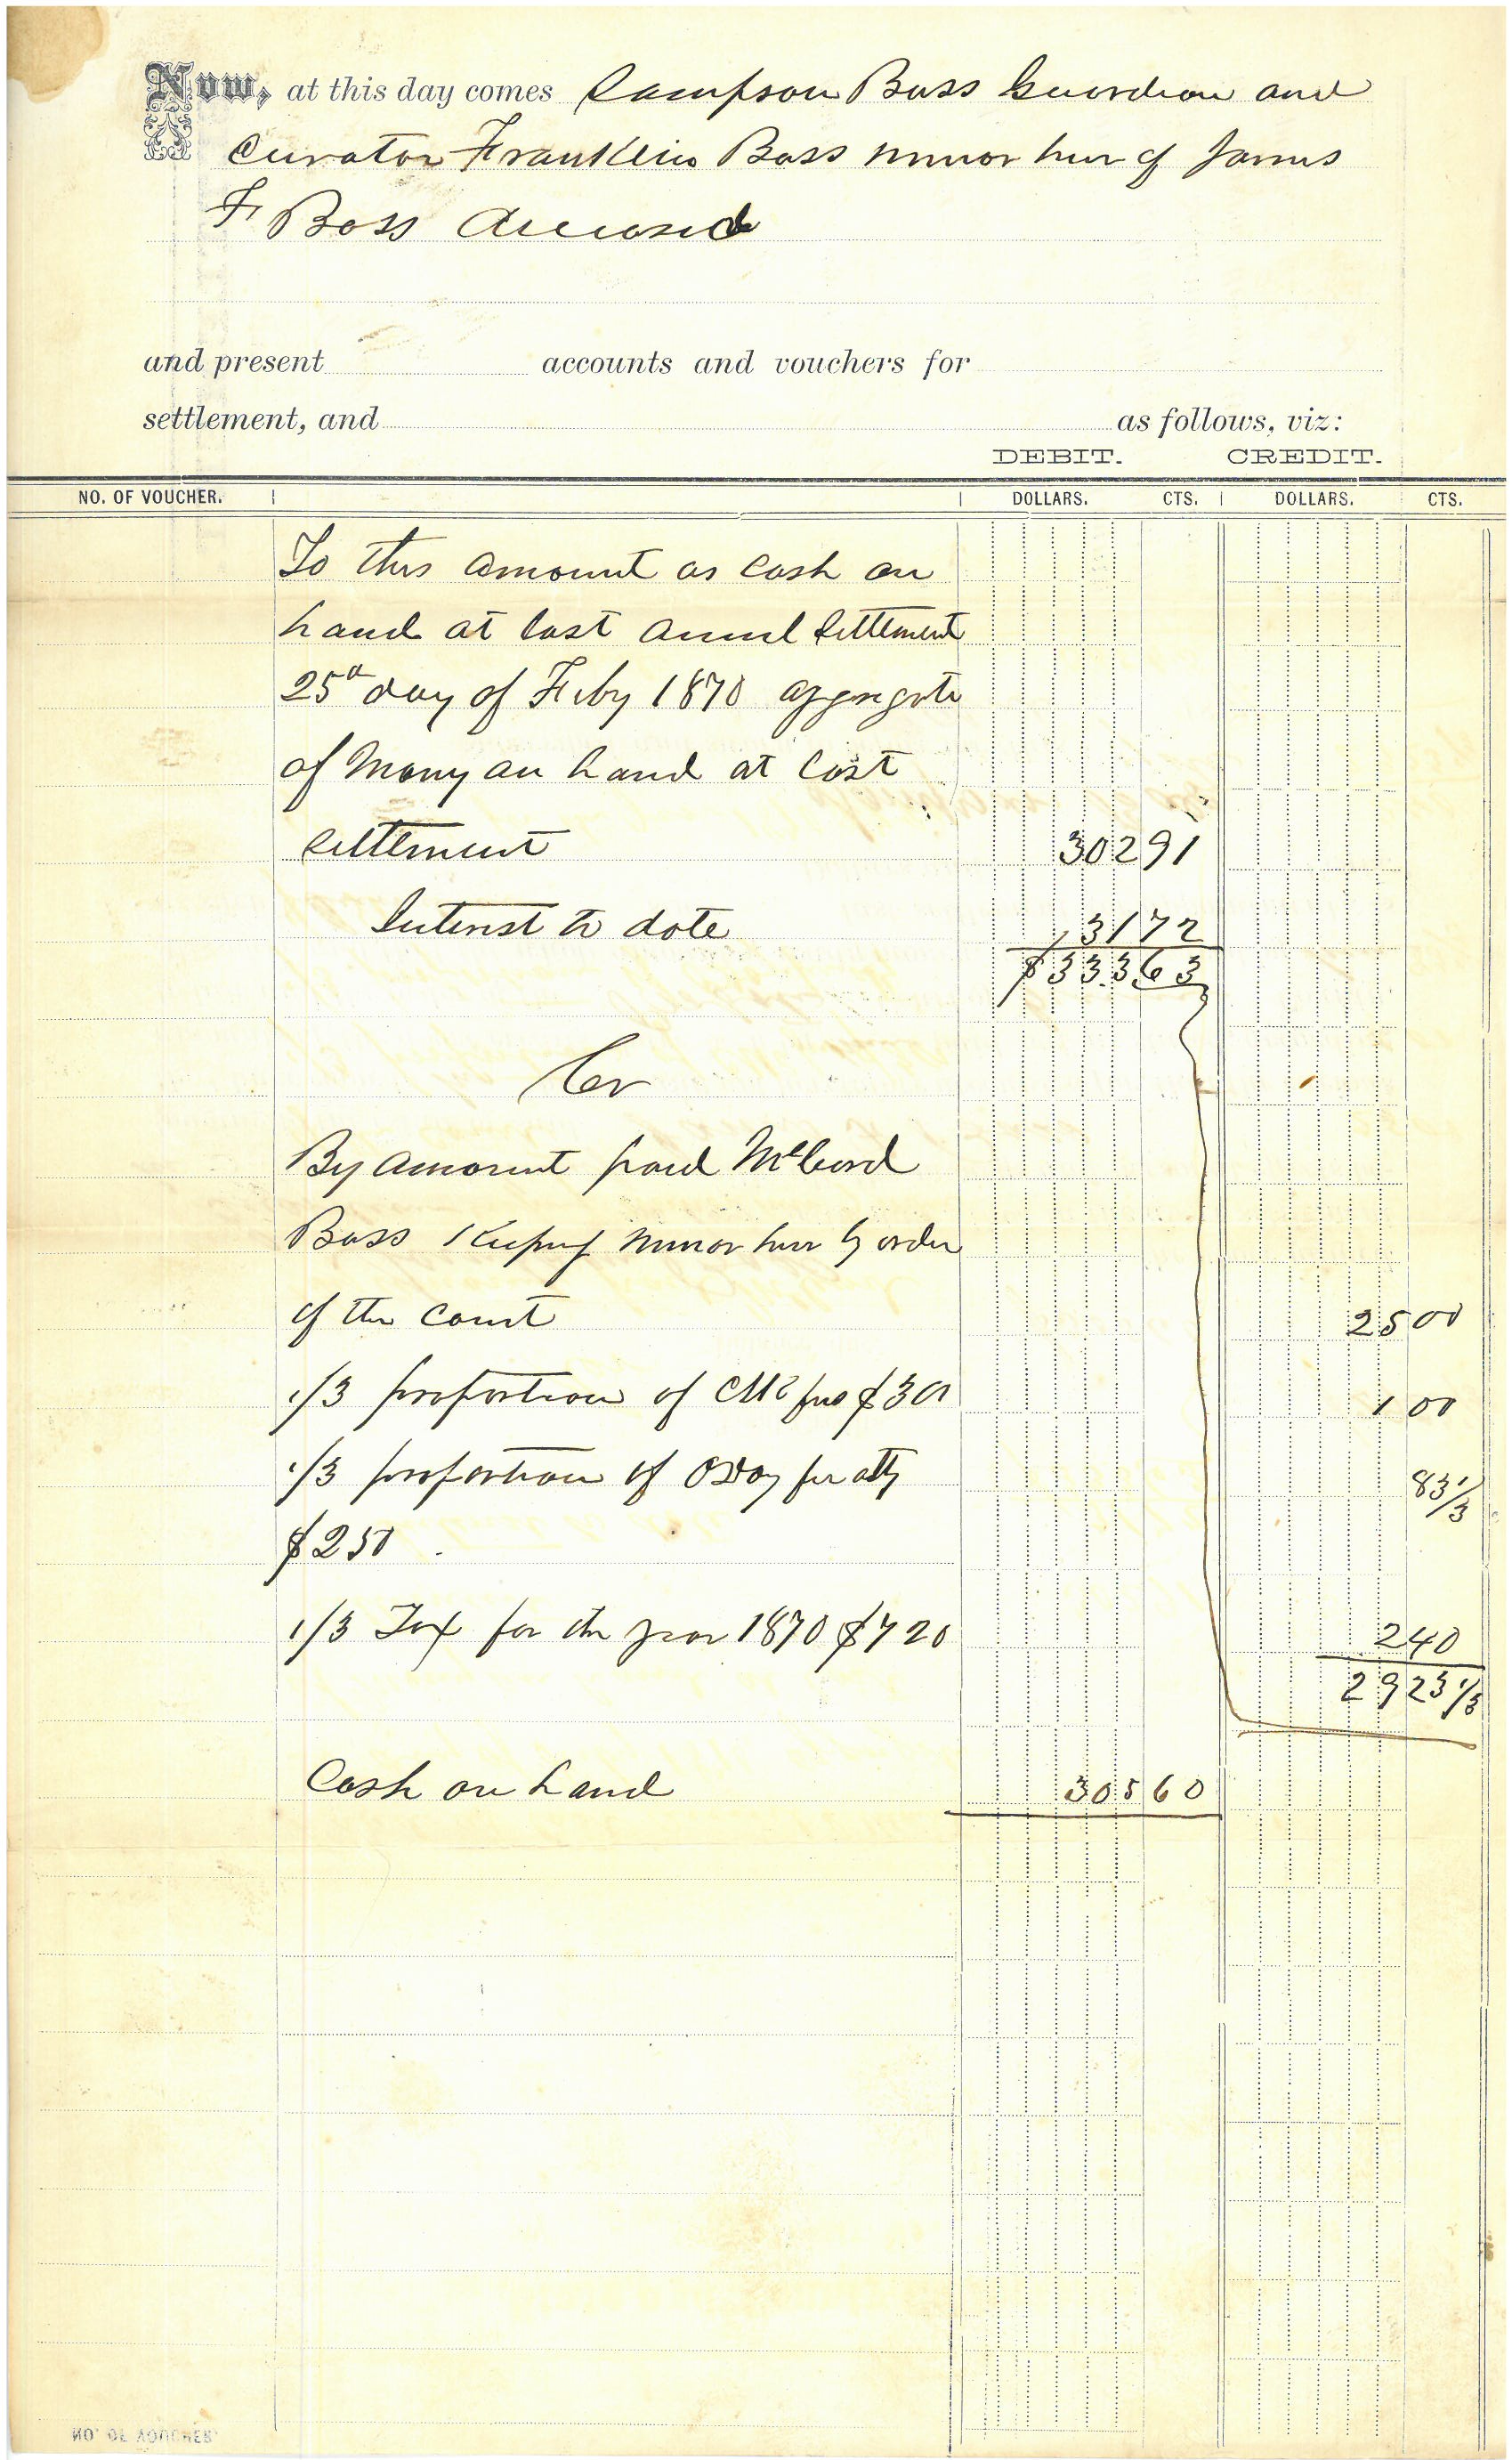 Now, at this day comes Sampson Bass Guardian and
Curator Franklin Bass minor heir of James
F Bass deceased
and present accounts and vouchers for
settlement, and as follows, viz:
DEBIT. CREDIT.
NO. OF VOUCHER. DOLLARS. CTS. DOLLARS. CTS.
To this amount as cash on
hand at last annul Settlement
25th day of Feby 1870 aggregate
of Mony on hand at last
settlement 302 91
Interest to date 31 72
$333 63
Cr
By amount paid McCord
Bass Keeping minor heir by order
of the court 25 00
1/3 proportion of fees $3 00 1 00
1/3 proportion of fee atty 83 1/3
$2 50
1/3 Tax for the year 1870 $7 20 2 40
29 23 1/3
Cash on hand 305 60
NO. OF VOUCHER